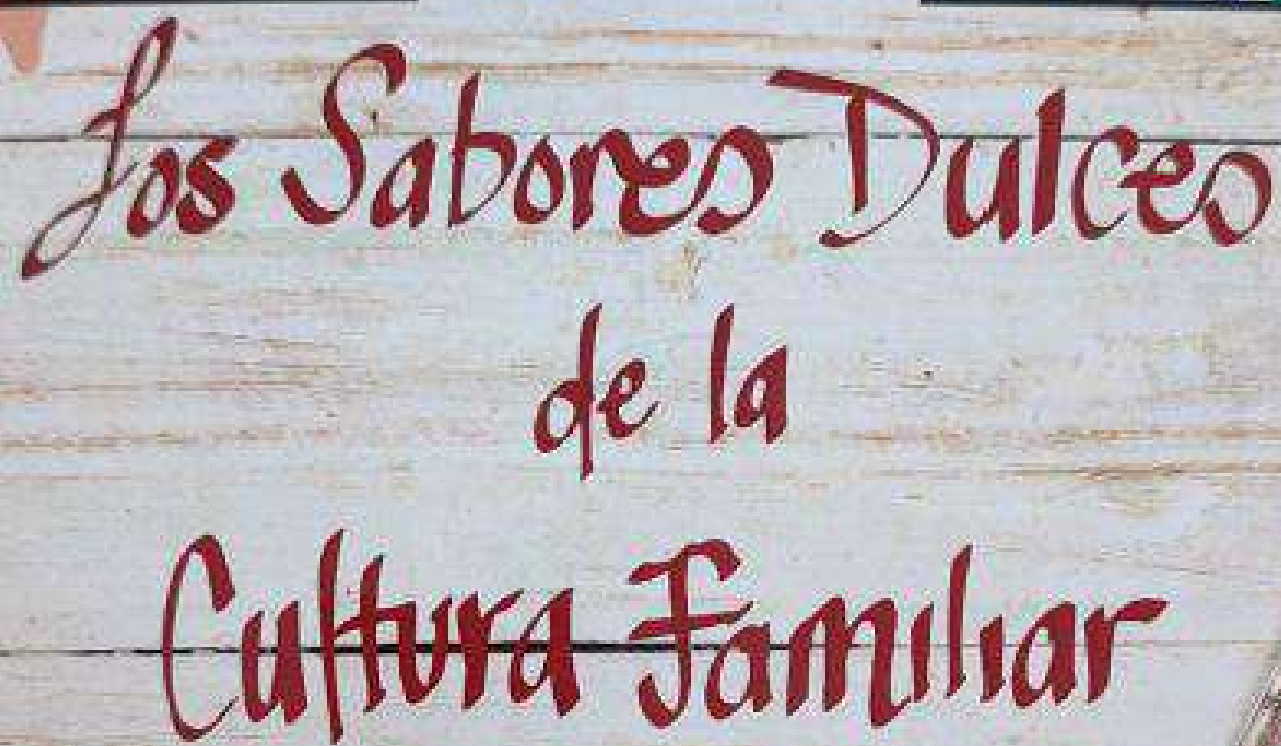 Los Sabores Dulces
de la
Cultura Familiar